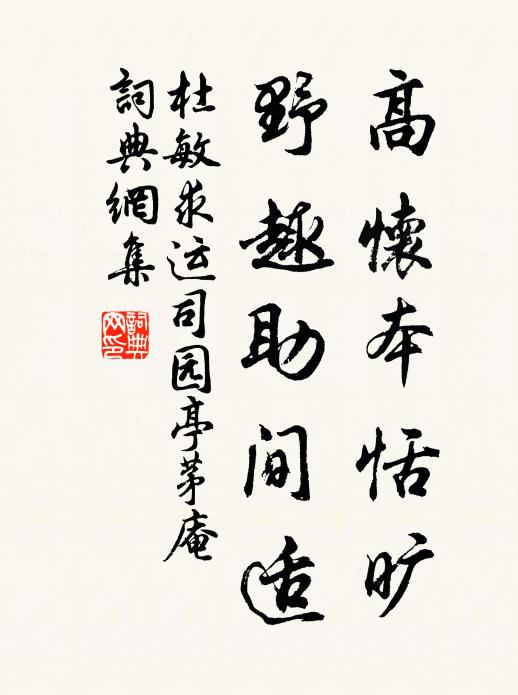 高懷本恬旷
野趣助间适
杜敏求运司园亭茅庵
詞典網集
詞典网印